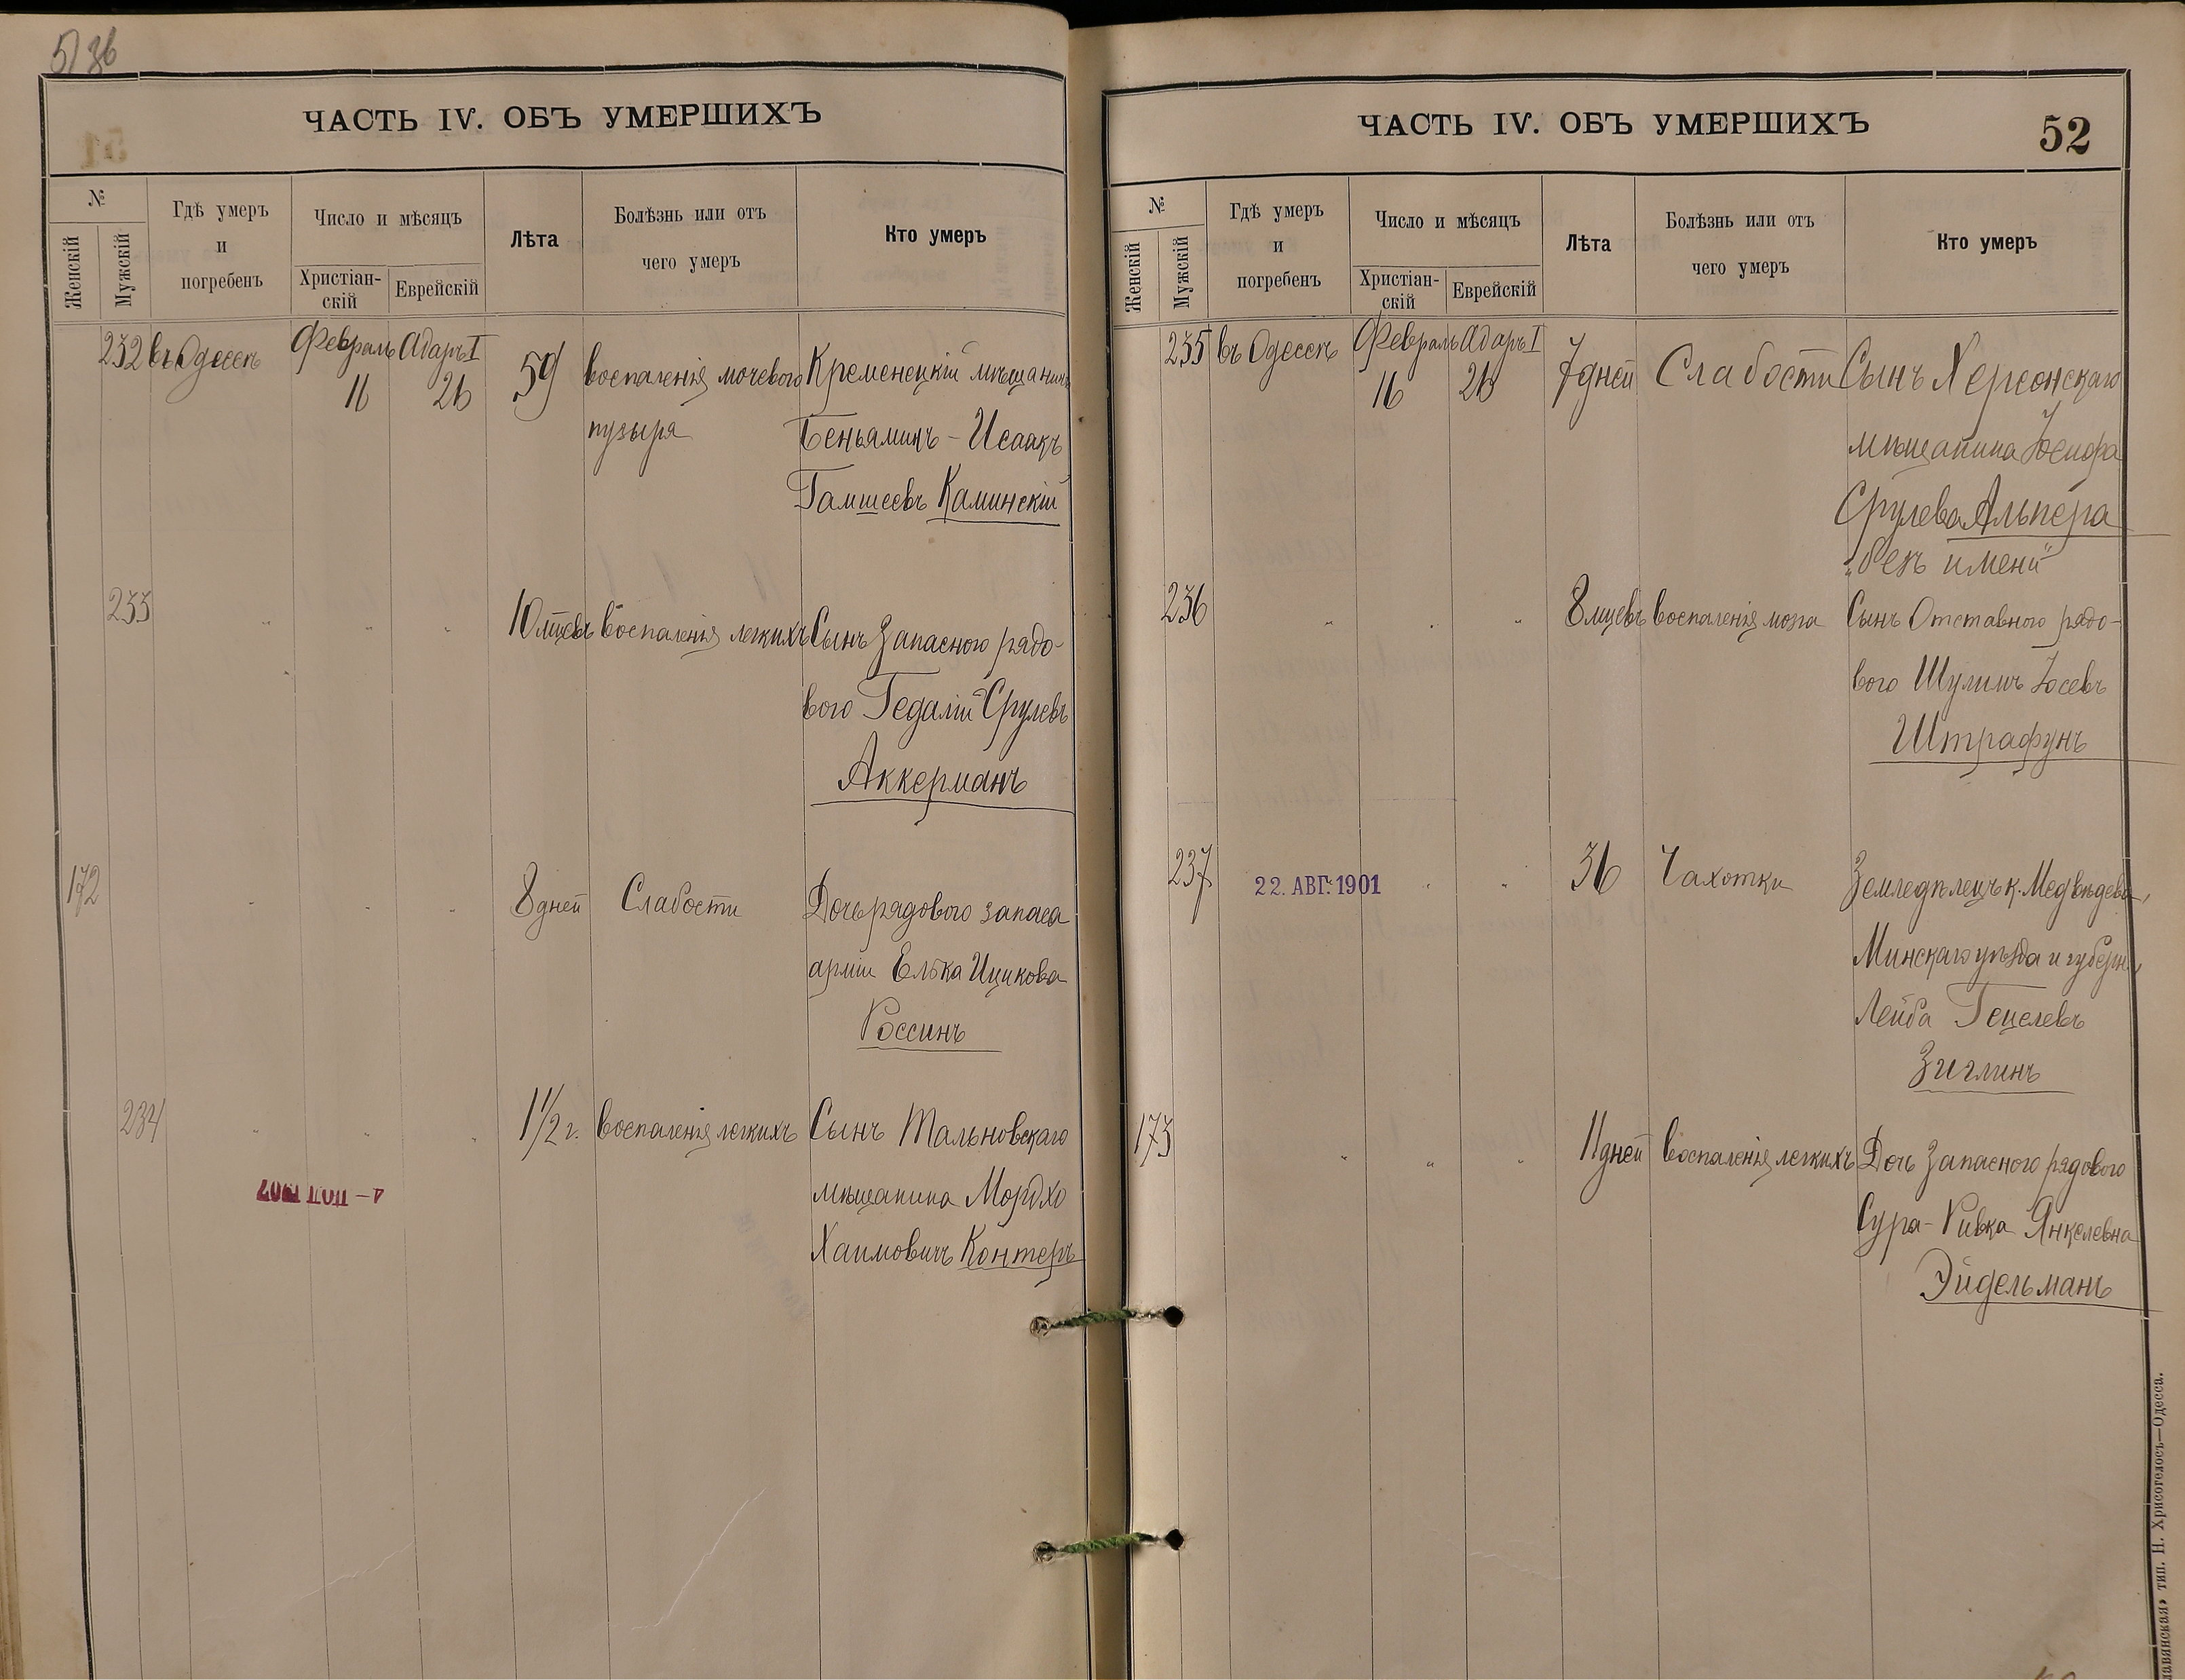 ЧАСТЬ IV. ОБЪ УМЕРШИХЪ
№
Женскій
Мужскій
Гдѣ умеръ
и
погребенъ
Число и мѣсяцъ
Христіан-
скій
Еврейскій
Лѣта
Болѣзнь или отъ
чего умеръ
Кто умеръ
232 въ Одессѣ Февраль Адаръ I 59 воспаленія мочевого Кременецкій мѣщанинъ
16 26
пузыря Беньяминъ-Исаакъ
Гамшеевъ Каминскій
233 " " " 10 мцевъ воспаленія легкихъ Сынъ Запасного рядо-
вого Гедалій Срулевъ
Аккерманъ
172 " " " 8 дней Слабости Дочь рядового запаса
арміи Елька Ицикова
Россинъ
234 " " " 1 1/2 г. воспаленія легкихъ Сынъ Тальновскаго
мѣщанина Мордхо
Хаимовичъ Контеръ
ЧАСТЬ IV. ОБЪ УМЕРШИХЪ
52
№
Женскій
Мужскій
Гдѣ умеръ
и
погребенъ
Число и мѣсяцъ
Христіан-
скій
Еврейскій
Лѣта
Болѣзнь или отъ
чего умеръ
Кто умеръ
235 въ Одессѣ Февраль Адаръ I 7 дней Слабости Сынъ Херсонскаго
16 26
мѣщанина Іосифа
Срулева Альпера
"безъ имени"
236 " " " 8 мцевъ воспаленія мозга Сынъ Отставного рядо-
вого Шулимъ Іосевъ
Штрафунъ
237 22. АВГ. 1901 " " 36 Чахотки Земледѣлецъ к. Медвѣдева,
Минскаго уѣзда и губерн.,
Лейба Гецелевъ
Зиглинъ
173 " " " 11 дней воспаленія легкихъ Дочь Запасного рядового
Сура-Ривка Янкелевна
Эйдельманъ
тип. Н. Хрисогелосъ—Одесса.